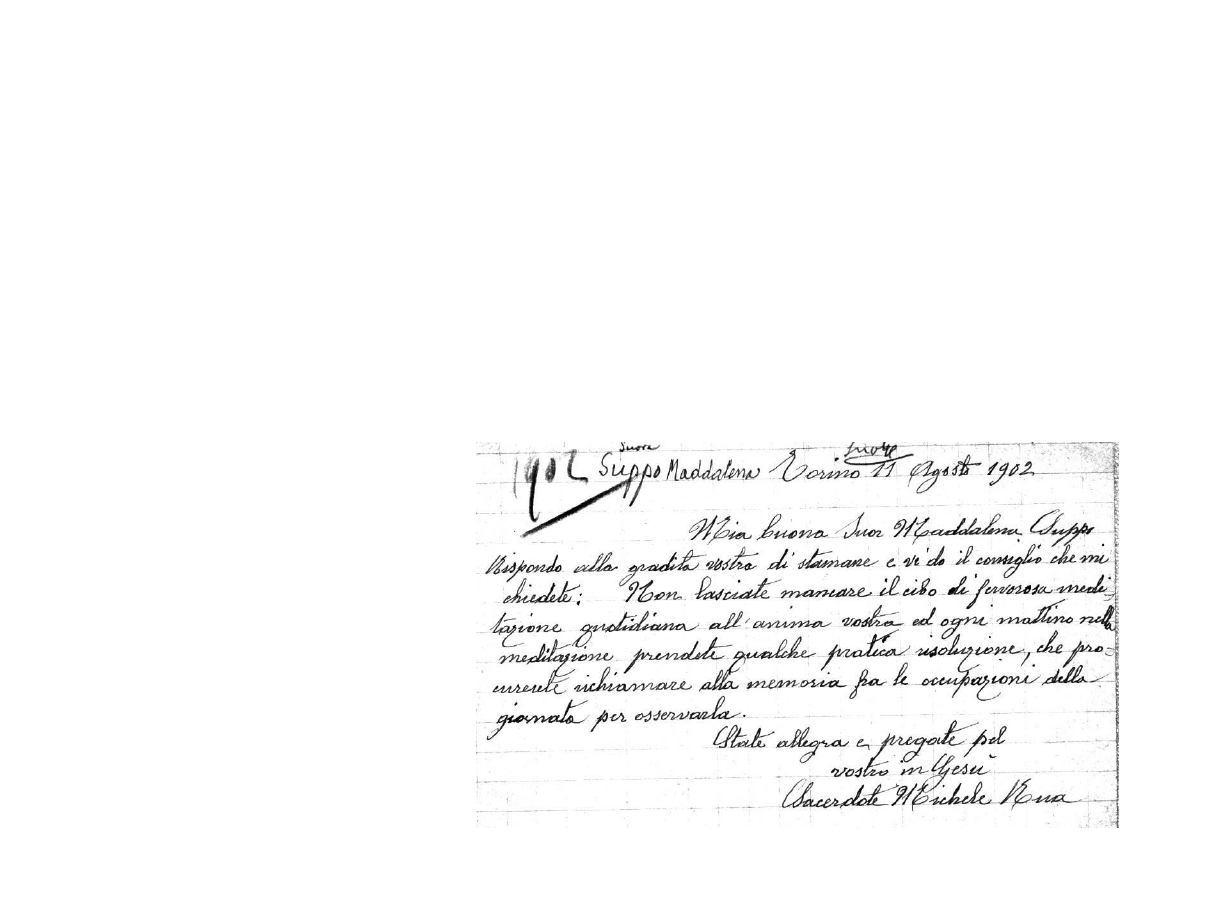 Suora suore
1902 Suppo Maddalena Torino 11 Agosto 1902
Mia buona Suor Maddalena Suppo
Rispondo alla gradita vostra di stamane e vi do il consiglio che mi
chiedete: Non lasciate mancare il cibo di fervorosa medi-
tazione quotidiana all'anima vostra ed ogni mattino nella
meditazione prendete qualche pratica risoluzione, che pro=
curerete richiamare alla memoria fra le occupazioni della
giornata per osservarla.
State allegra e pregate pel
vostro in Gesù
Sacerdote Michele Rua